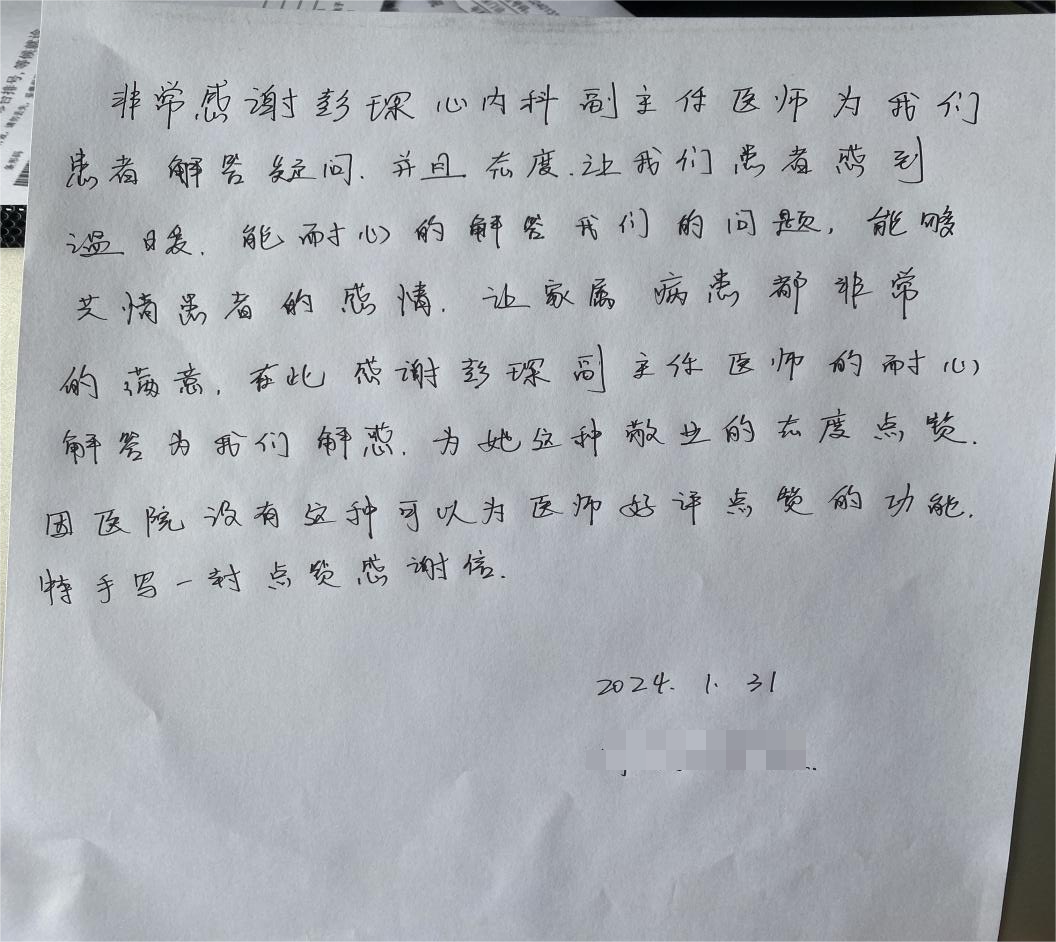 日排号，等候就诊
非常感谢彭琛心内科副主任医师为我们
患者解答疑问.并且态度.让我们患者感到
温暖.能耐心的解答我们的问题,能够
共情患者的感情.让家属病患都非常
的满意.在此感谢彭琛副主任医师的耐心
解答为我们解惑.为她这种敬业的态度点赞.
因医院没有这种可以为医师好评点赞的功能.
特手写一封点赞感谢信.
2024.1.31